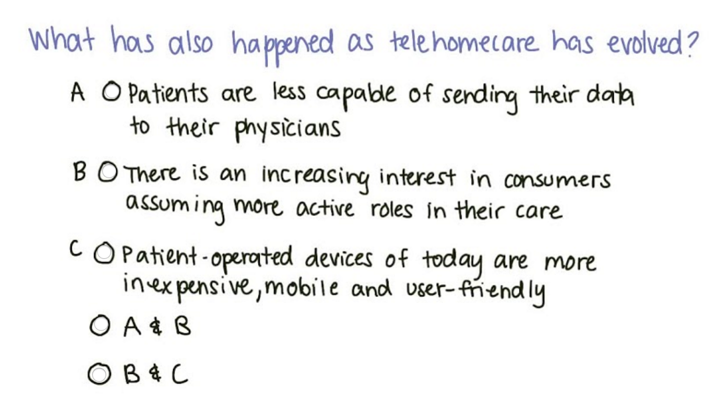 What has also happened as telehomecare has evolved?
A O Patients are less capable of sending their data
to their physicians
B O There is an increasing interest in consumers
assuming more active roles in their care
C O Patient-operated devices of today are more
inexpensive, mobile and user-friendly
O A & B
O B & C